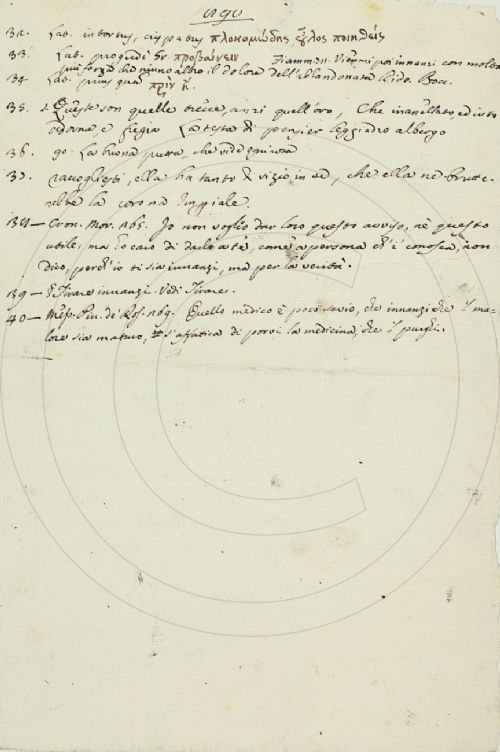 ugo
32. Lat. intortus, crispatus πλοκαμώδης, οὖλος ποιηθείς
33. Lat. progredi &c. προβαίνειν Fiammet. Viemmi poi innanzi con molta
più forza che niuno altro il dolore dell'abbandonata Dido. Bocc.
34. Lat. prius quam πρίν ἤ.
35. Queste son quelle trecce, anzi quell'oro, Che inanellato, ed irto
adorna, e fregia La testa di pensier leggiadro albergo
36. 90. La buona putta, che vide
37. raccogliesi, ella ha tanto vizio in se, che ella ne brutte-
rebbe la corona Imperiale.
138 — Cron. Mor. 265. Io non voglio dar loro questo avviso, nè questo
utile, ma io caro di darlo a te, come a persona ch'i' conosca, non
dico, perch'io ti sia innanzi, ma per la verità.
139 — § Tirare innanzi. Vedi Tirare.
40 — Mess. Pin. de' Ros. 269. Quello medico è poco savio, che innanzi che il ma-
lore sia maturo, s'affatica di porvi la medicina, che il purghi.